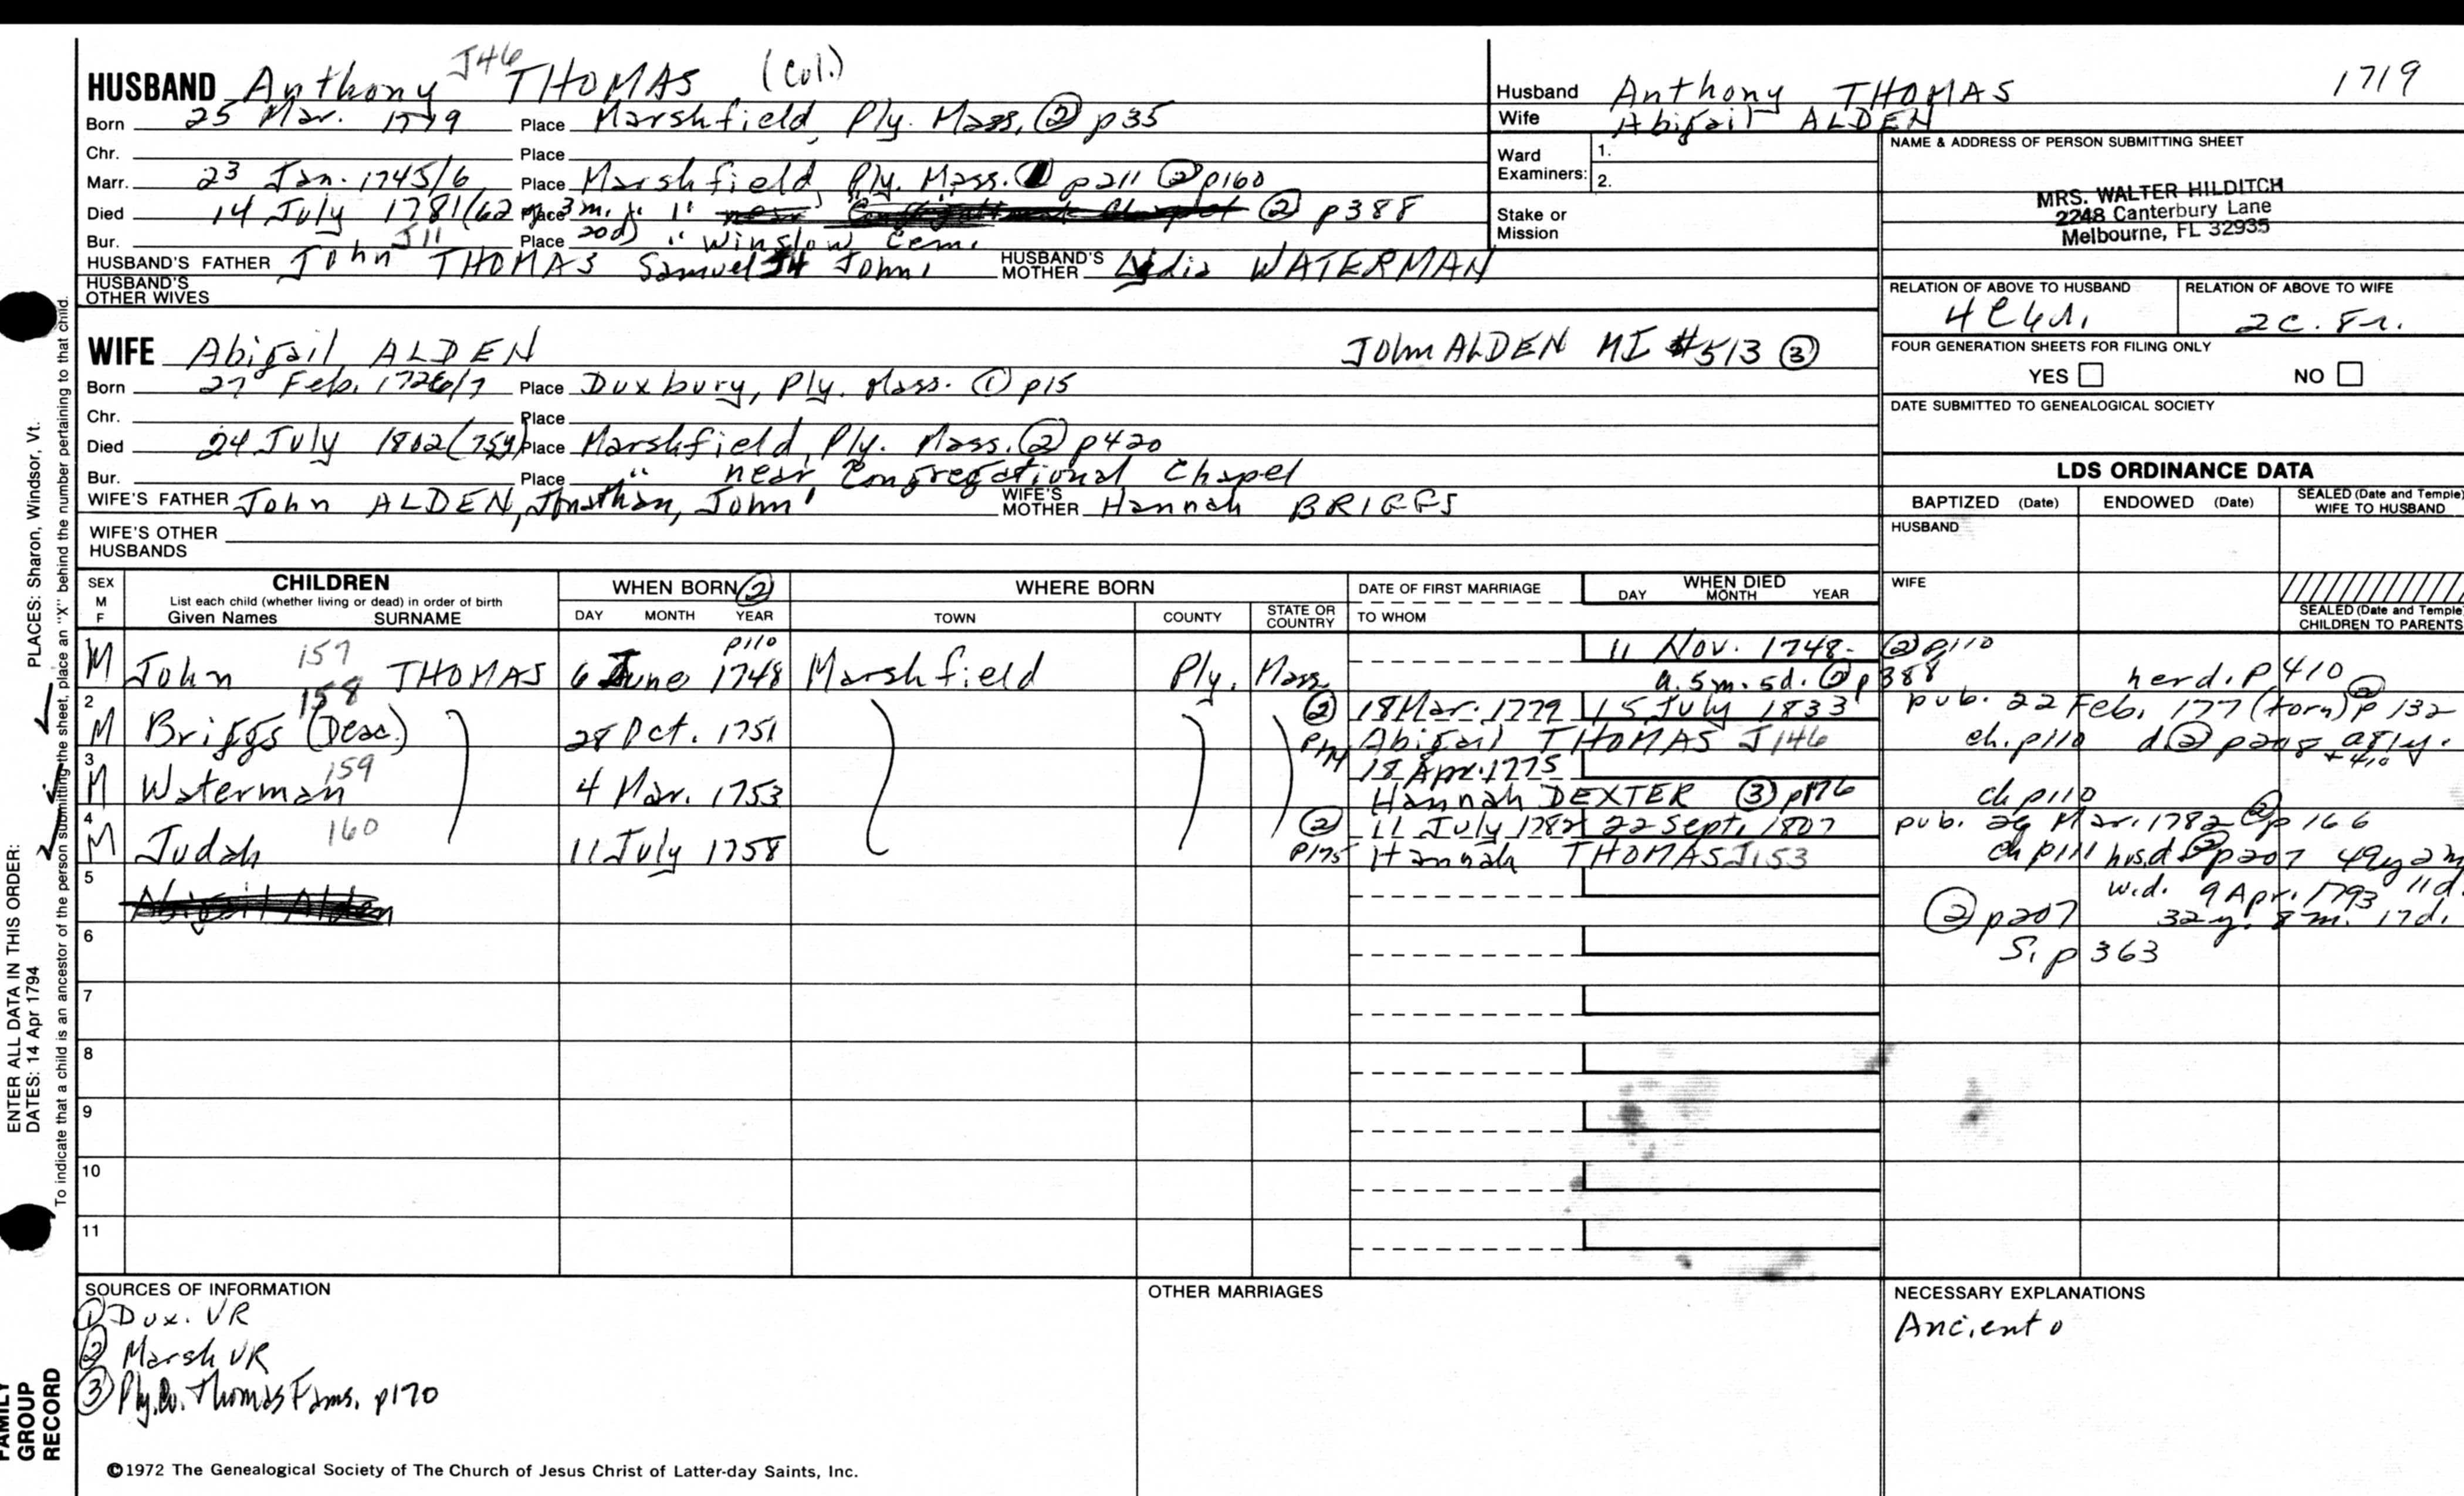 HUSBAND Anthony J46 THOMAS (Col.)
Born 25 Mar. 1719 Place Marshfield, Ply. Mass. ② p35
Chr. Place
Marr. 23 Jan. 1745/6 Place Marshfield, Ply. Mass. ① p211 ② p160
Died 14 July 1781 (62y 3m. 20d) Place " " near ② p388
Bur. Place " Winslow Cem.
HUSBAND'S FATHER John J11 THOMAS Samuel J4 John, HUSBAND'S MOTHER Lydia WATERMAN
HUSBAND'S OTHER WIVES
Husband Anthony THOMAS 1719
Wife Abigail ALDEN
Ward Examiners: 1.
2.
Stake or Mission
NAME & ADDRESS OF PERSON SUBMITTING SHEET
MRS. WALTER HILDITCH
2248 Canterbury Lane
Melbourne, FL 32935
RELATION OF ABOVE TO HUSBAND RELATION OF ABOVE TO WIFE
2c. 8r.
FOUR GENERATION SHEETS FOR FILING ONLY
YES NO
DATE SUBMITTED TO GENEALOGICAL SOCIETY
WIFE Abigail ALDEN John ALDEN MI #513 ③
Born 27 Feb. 1726/7 Place Duxbury, Ply. Mass. ① p15
Chr. Place
Died 24 July 1802 (75y) Place Marshfield, Ply. Mass. ② p420
Bur. Place " near Congregational Chapel
WIFE'S FATHER John ALDEN, Jonathan, John' WIFE'S MOTHER Hannah BRIGGS
WIFE'S OTHER HUSBANDS
LDS ORDINANCE DATA
BAPTIZED (Date) ENDOWED (Date) SEALED (Date and Temple) WIFE TO HUSBAND
HUSBAND
WIFE
SEALED (Date and Temple) CHILDREN TO PARENTS
SEX M F
CHILDREN
List each child (whether living or dead) in order of birth
Given Names SURNAME
WHEN BORN ②
DAY MONTH YEAR
WHERE BORN
TOWN COUNTY STATE OR COUNTRY
DATE OF FIRST MARRIAGE
TO WHOM
WHEN DIED
DAY MONTH YEAR
1 M John 157 THOMAS 6 June 1748 p110 Marshfield Ply. Mass. 11 Nov. 1748- ② p110
a. 5m. 5d. ② p388 herd. p410
2 M Briggs (Deac.) 158 28 Oct. 1751 ② 18 Mar. 1779 15 July 1833 pub. 22 Feb. 177 (torn) p 132 ②
Abigail THOMAS J146 ch. p110 d ② p208 a81y. + 410
3 M Waterman 159 4 Mar. 1753 18 Apr. 1775
Hannah DEXTER ③ p176 ch p110
4 M Judah 160 11 July 1758 ② 11 July 1782 22 Sept. 1807 pub. 29 Mar. 1782 ② p 166
p175 Hannah THOMAS J153 ch p111 hrs.d ② p207 49y 2m 11d.
5 Abigail Alden
w.d. 9 Apr. 1793
② p207 32y. 8m. 17d.
6 S. p 363
7
8
9
10
11
SOURCES OF INFORMATION
① Dux. VR
② Marsh VR
③ Ply. Co. Thomas Fams. p170
OTHER MARRIAGES
NECESSARY EXPLANATIONS
©1972 The Genealogical Society of The Church of Jesus Christ of Latter-day Saints, Inc.
ENTER ALL DATA IN THIS ORDER:
DATES: 14 Apr 1794 PLACES: Sharon, Windsor, Vt.
To indicate that a child is an ancestor of the person submitting the sheet, place an "X" behind the number pertaining to that child.
FAMILY GROUP RECORD